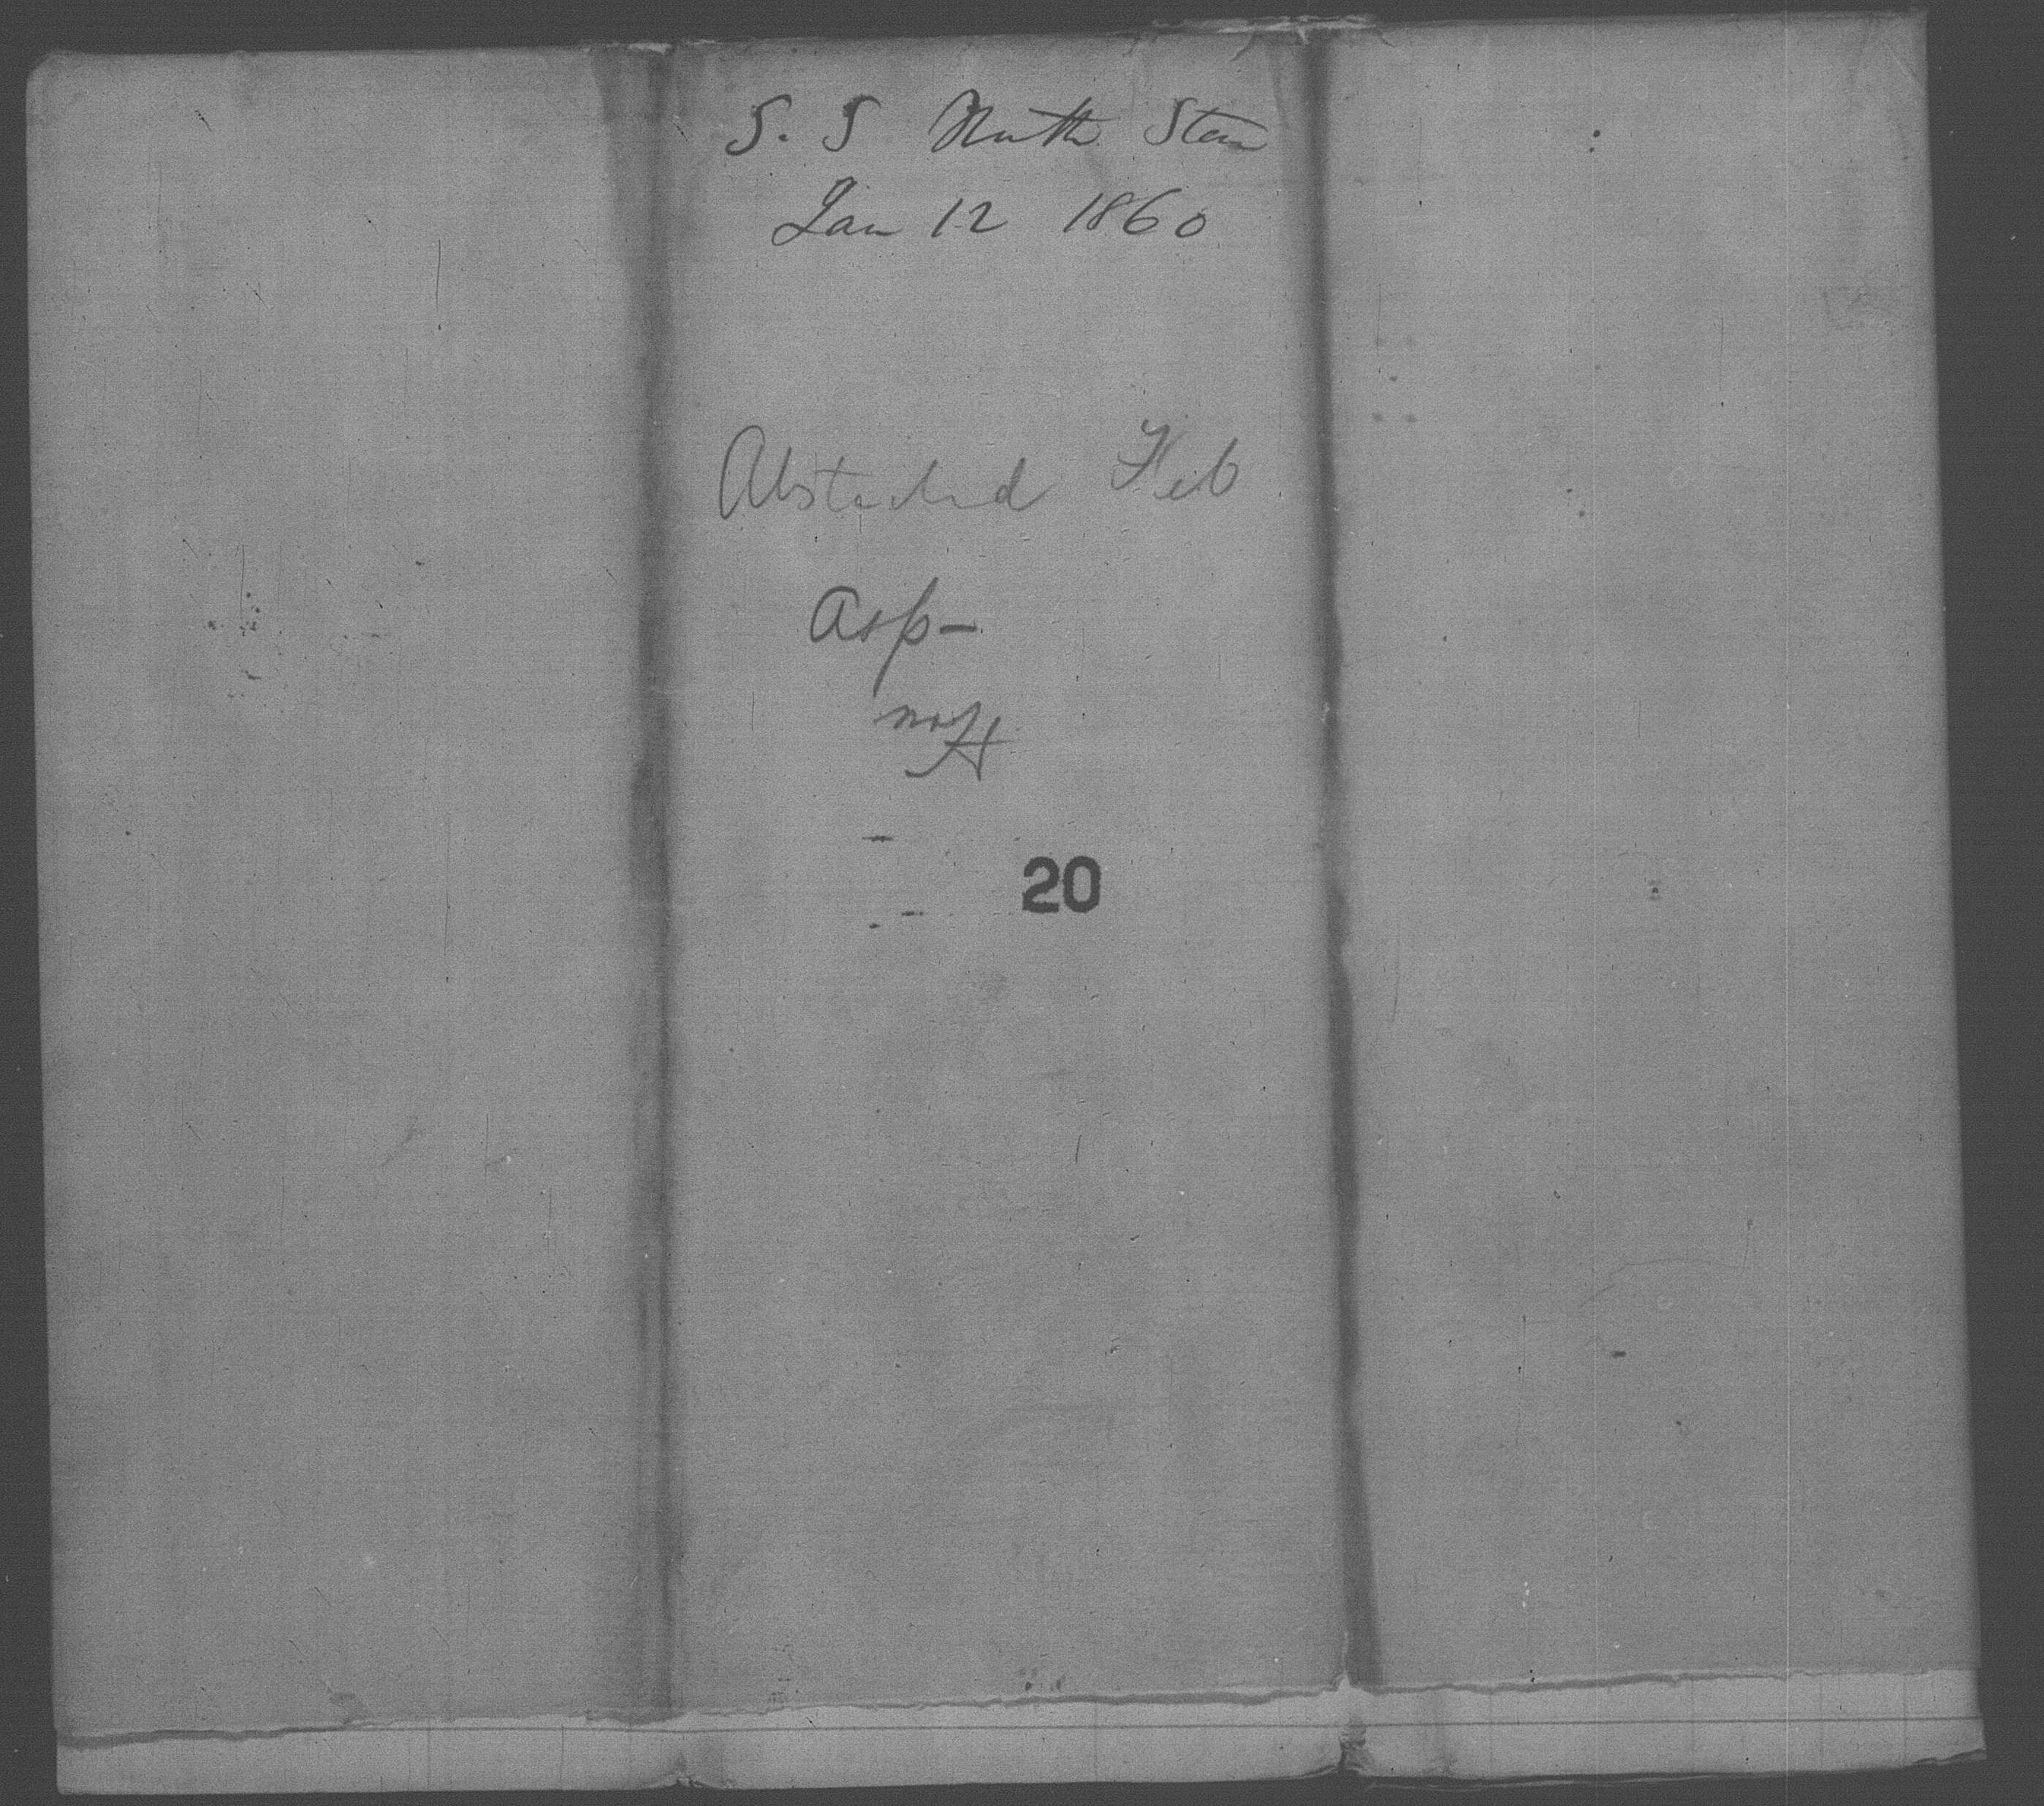 S. S North Star
Jan 12 1860
Abstracted Feb
Asp-
20